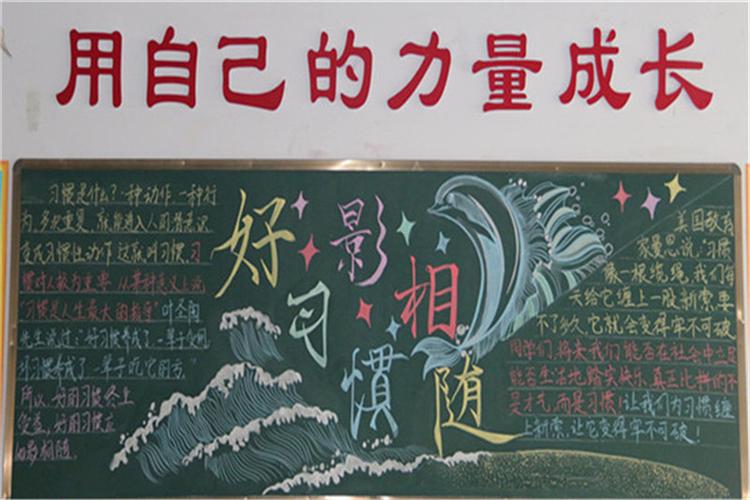 用自己的力量成长
习惯是什么？一种动作，一种行
为，多次重复，就能进入人的潜意识
变成习惯性动作，这就叫习惯。习
惯对人极为重要，从某种意义上说
“习惯是人生最大的教导”叶圣陶
先生说过：好习惯养成了，一辈子受用
坏习惯养成了，一辈子吃它的亏。
所以，好的习惯终生
受益，好的习惯应
如影相随。
好习惯
影相随
美国教育
家曼恩说：习惯
像一根缆绳，我们每
天给它缠上一股新索，要
不了多久，它就会变得牢不可破
同学们，将来我们能否在社会中立足
能否生活地踏实快乐，真正比拼的不
是才华，而是习惯！让我们为习惯缠
上新索，让它变得牢不可破！